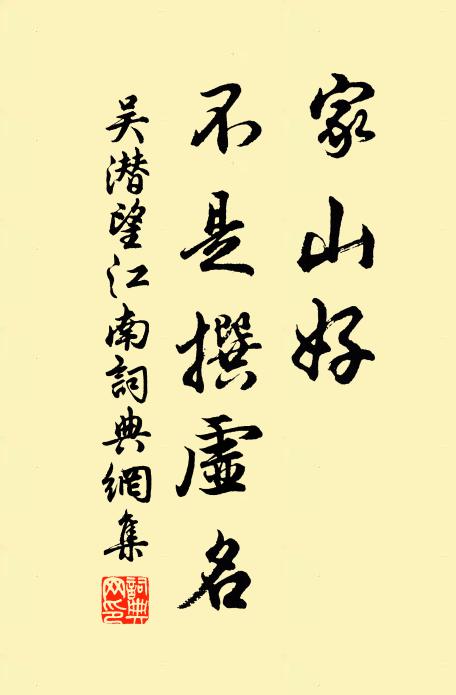 家山好
不是撰虚名
吴潜望江南詞典網集
詞典网印